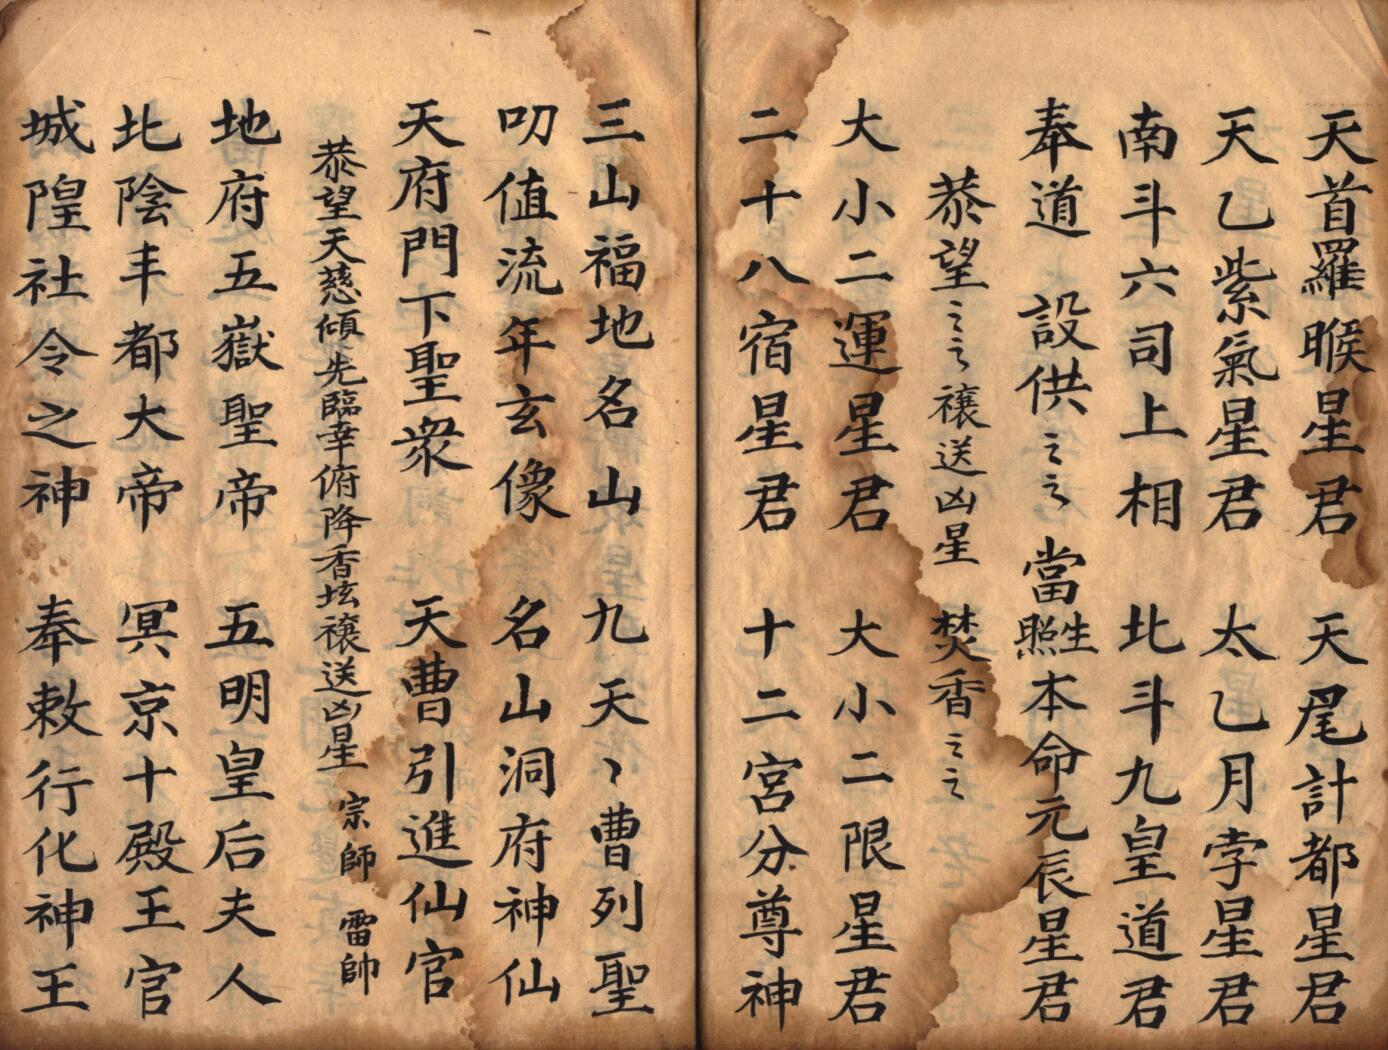 天首羅睺星君　天尾計都星君
天乙紫氣星君　太乙月孛星君
南斗六司上相　北斗九皇道君
奉道　設供〻〻　當生照本命元辰星君
恭望〻〻禳送凶星　焚香〻〻
大小二運星君　大小二限星君
二十八宿星君　十二宮分尊神
三山福地名山　九天〻曹列聖
叨值流年玄像　名山洞府神仙
天府門下聖衆　天曹引進仙官
恭望天慈傾先臨幸俯降香坛禳送凶星　宗師　雷帥
地府五嶽聖帝　五明皇后夫人
北陰丰都大帝　冥京十殿王官
城隍社令之神　奉敕行化神王